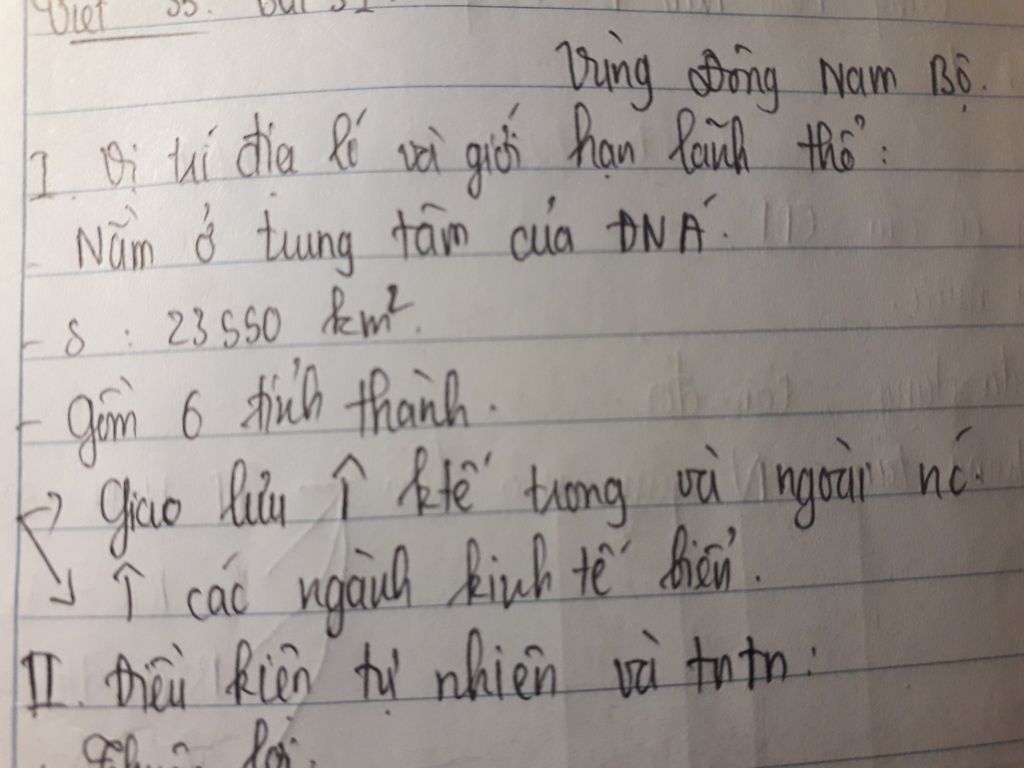 Việt 35. Bài 31
Vùng Đông Nam Bộ.
I. Vị trí địa lí và giới hạn lãnh thổ:
- Nằm ở trung tâm của ĐNÁ.
- S: 23550 km².
- Gồm 6 tỉnh thành.
→ Giao lưu ↑ ktế trong và ngoài nć.
↘ ↑ các ngành kinh tế biển.
II. Điều kiện tự nhiên và tntn:
lợi: